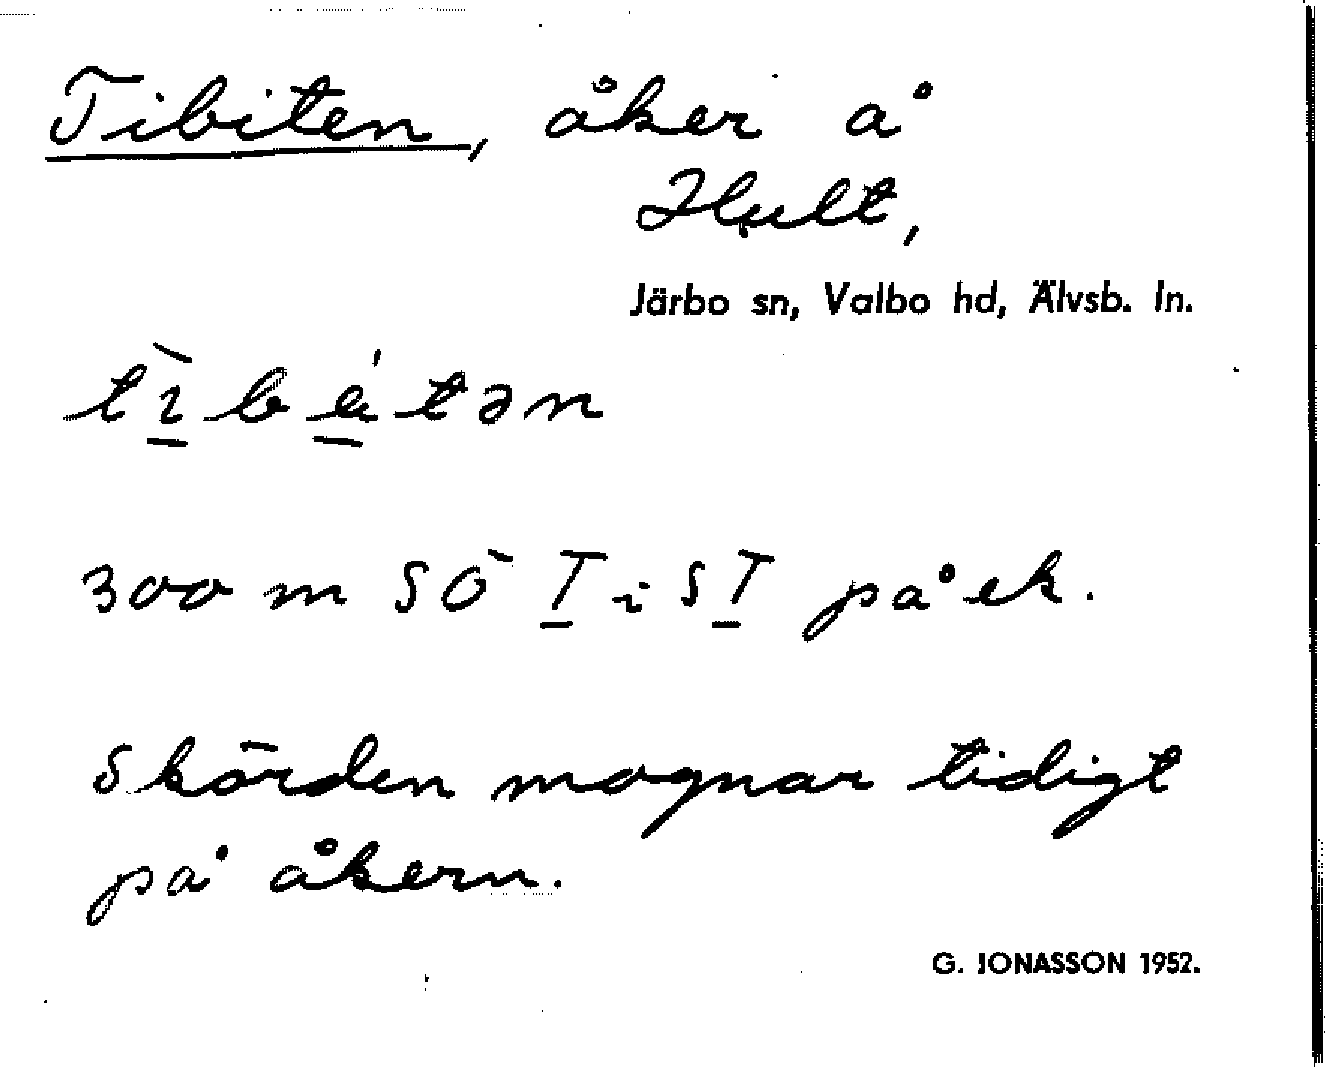 Tibiten, åker å
Hult,
Järbo sn, Valbo hd, Älvsb. ln.
300 m SÖ T i ST på ek.
Skörden mognar tidigt
på åkern.
G. JONASSON 1952.